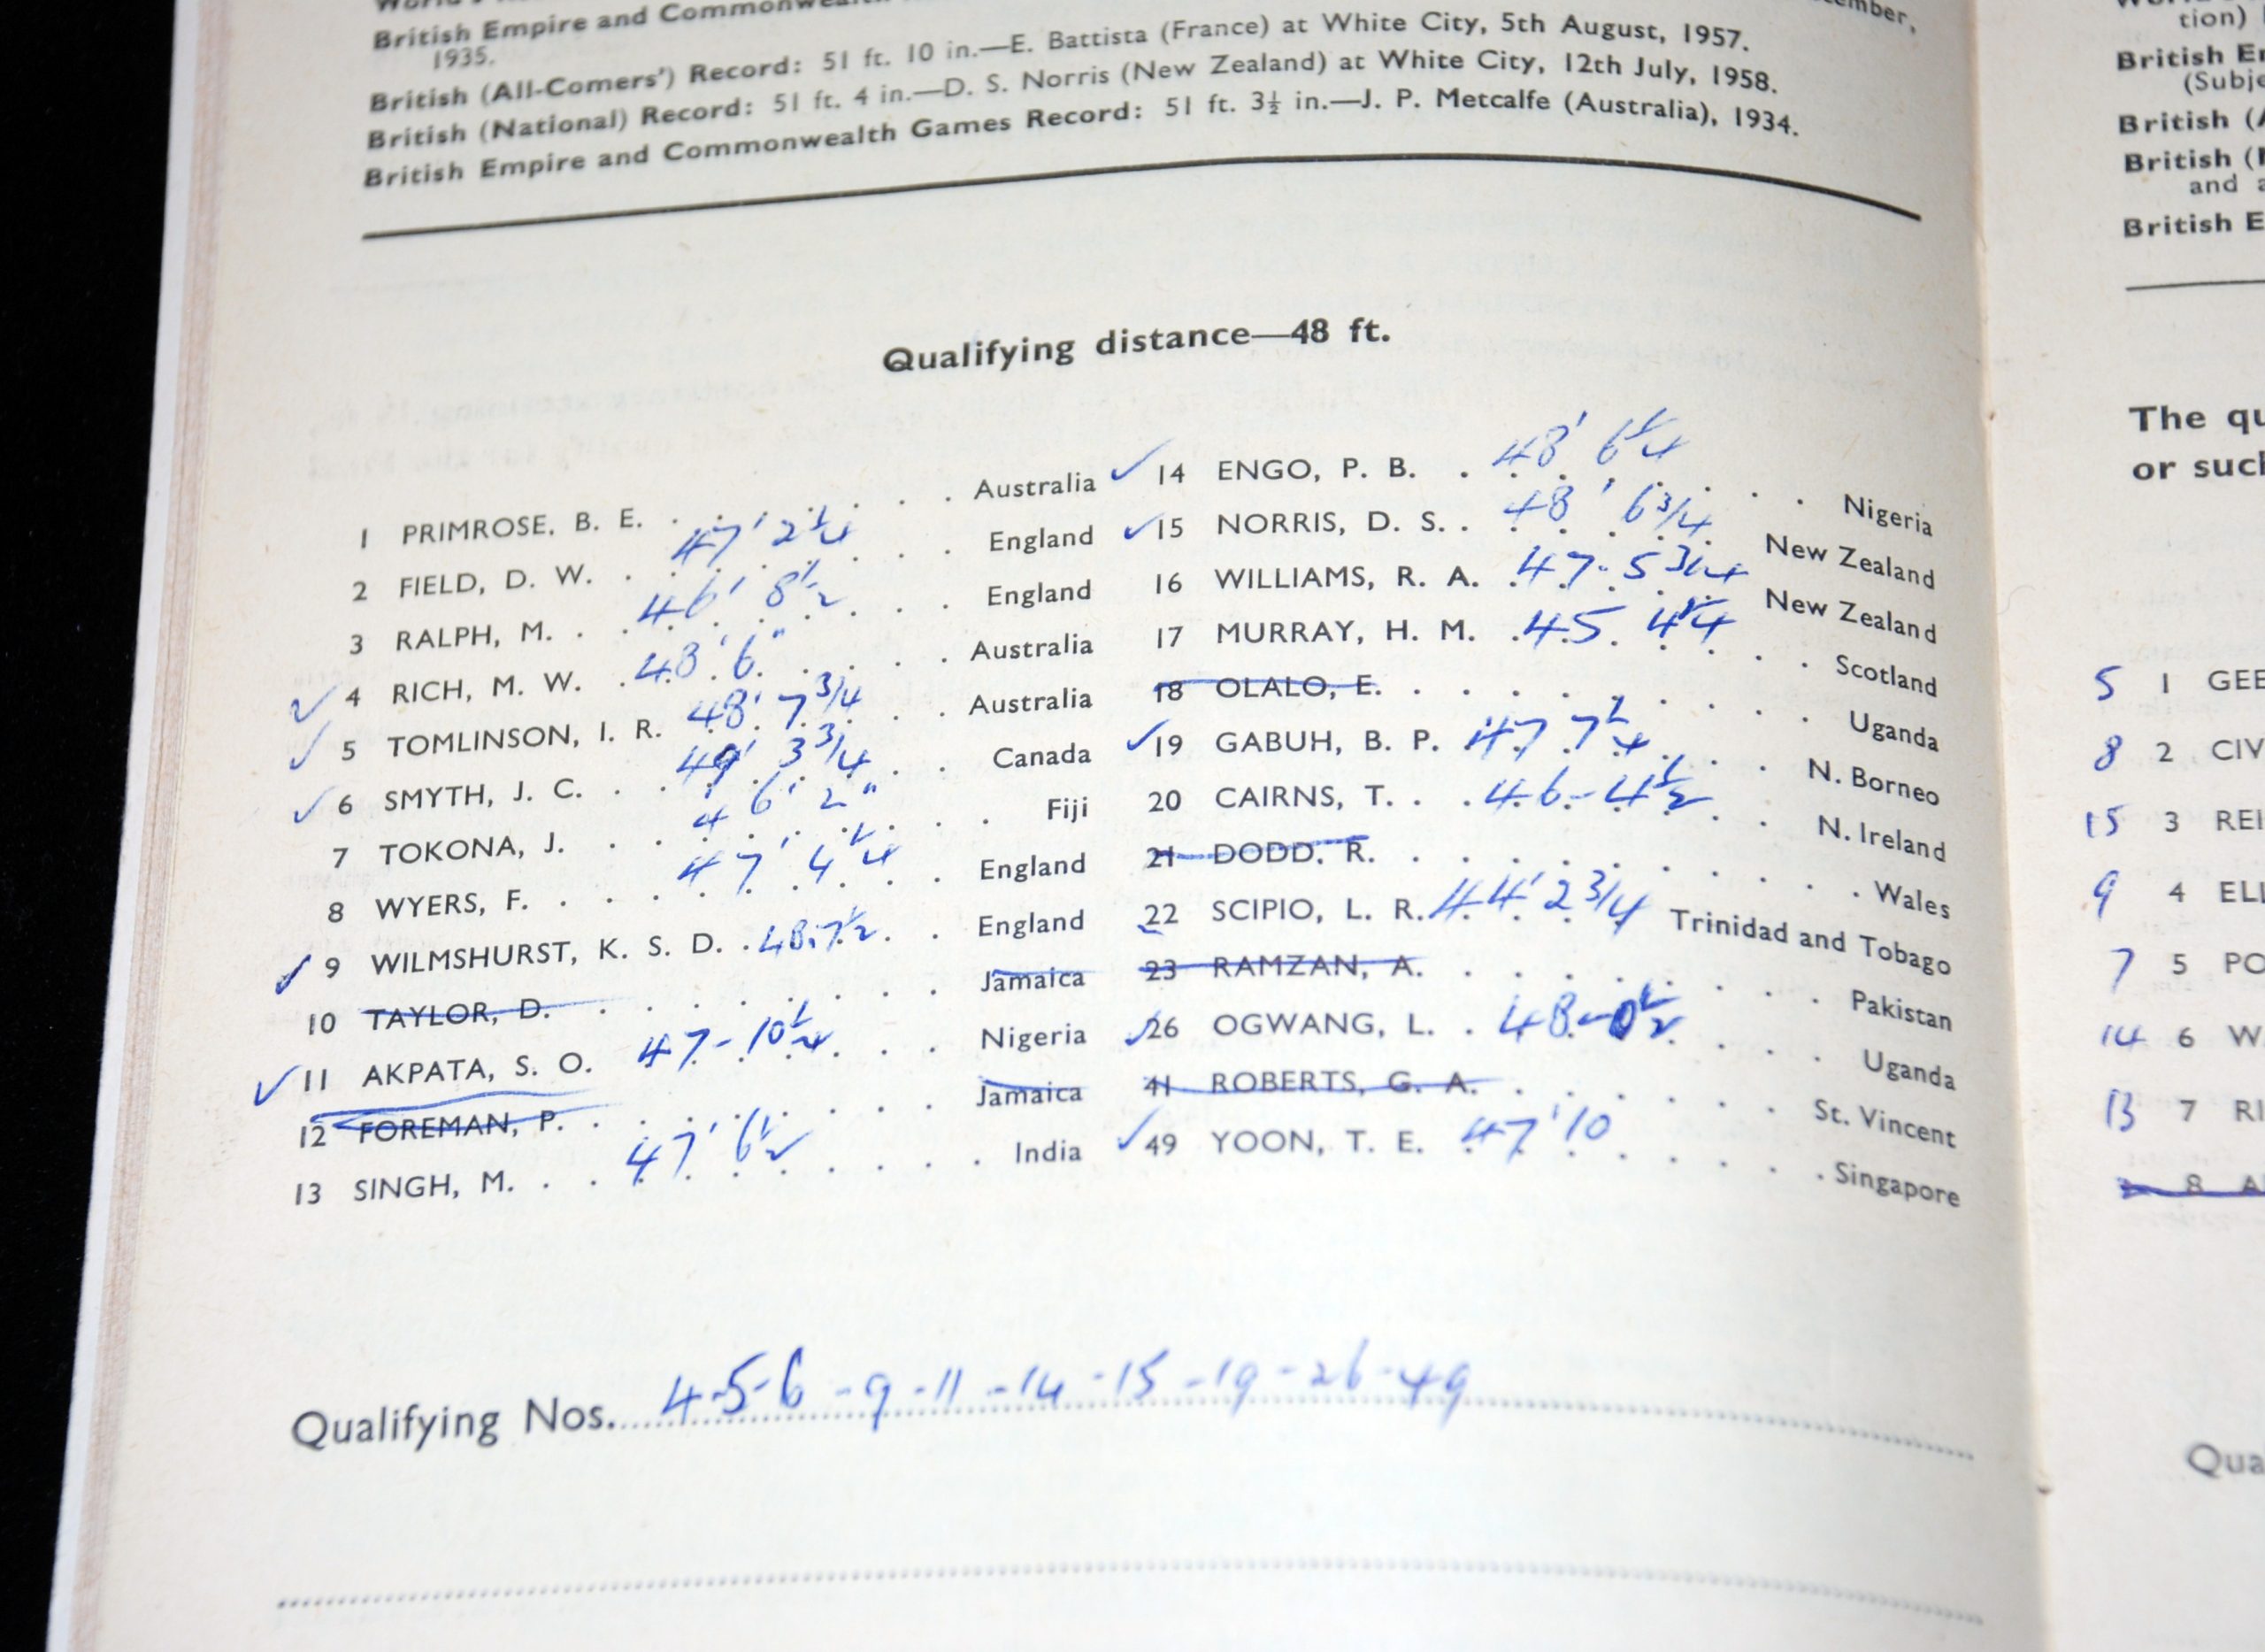 British Empire and Commonwealth
1935.
British (All-Comers') Record: 51 ft. 10 in.—E. Battista (France) at White City, 5th August, 1957.
British (National) Record: 51 ft. 4 in.—D. S. Norris (New Zealand) at White City, 12th July, 1958.
British Empire and Commonwealth Games Record: 51 ft. 3½ in.—J. P. Metcalfe (Australia), 1934.
Qualifying distance—48 ft.
1 PRIMROSE, B. E. . . . . . . Australia
2 FIELD, D. W. . 47' 2¼ . . . England
3 RALPH, M. . . 46' 8½ . . . England
✓ 4 RICH, M. W. . 48' 6" . . . Australia
✓ 5 TOMLINSON, I. R. 48' 7 3/4 . . . Australia
✓ 6 SMYTH, J. C. . . 49' 3 3/4 . . Canada
7 TOKONA, J. . . 46' 2" . . . Fiji
8 WYERS, F. . . . 47' 4¼ . . England
✓ 9 WILMSHURST, K. S. D. . 48.7½ . . England
10 TAYLOR, D. . . . . . . . Jamaica
✓ 11 AKPATA, S. O. 47-10¼ . . . Nigeria
12 FOREMAN, P. . . . . . . . Jamaica
13 SINGH, M. . . 47' 6½ . . . . India
✓ 14 ENGO, P. B. . 48' 6¼ . . Nigeria
✓ 15 NORRIS, D. S. . 48' 6 3/4 New Zealand
16 WILLIAMS, R. A. . 47-5 3/4 New Zealand
17 MURRAY, H. M. . 45. 4¼ . . Scotland
18 OLALO, E. . . . . . . . Uganda
✓ 19 GABUH, B. P. 47 7¼ . . N. Borneo
20 CAIRNS, T. . . 46-4½ . . N. Ireland
21 DODD, R. . . . . . . . Wales
22 SCIPIO, L. R. 44' 2 3/4 Trinidad and Tobago
23 RAMZAN, A. . . . . . . . Pakistan
✓ 26 OGWANG, L. . 48-0½ . . . Uganda
41 ROBERTS, G. A. . . . . . St. Vincent
✓ 49 YOON, T. E. 47' 10 . . . . Singapore
Qualifying Nos. 4-5-6-9-11-14-15-19-26-49
tion)
British E
(Subje
British (
British (
and a
British E
The qu
or such
5 1 GEE
8 2 CIV
15 3 REI
9 4 ELL
7 5 PO
14 6 W
13 7 RI
8 A
Qua